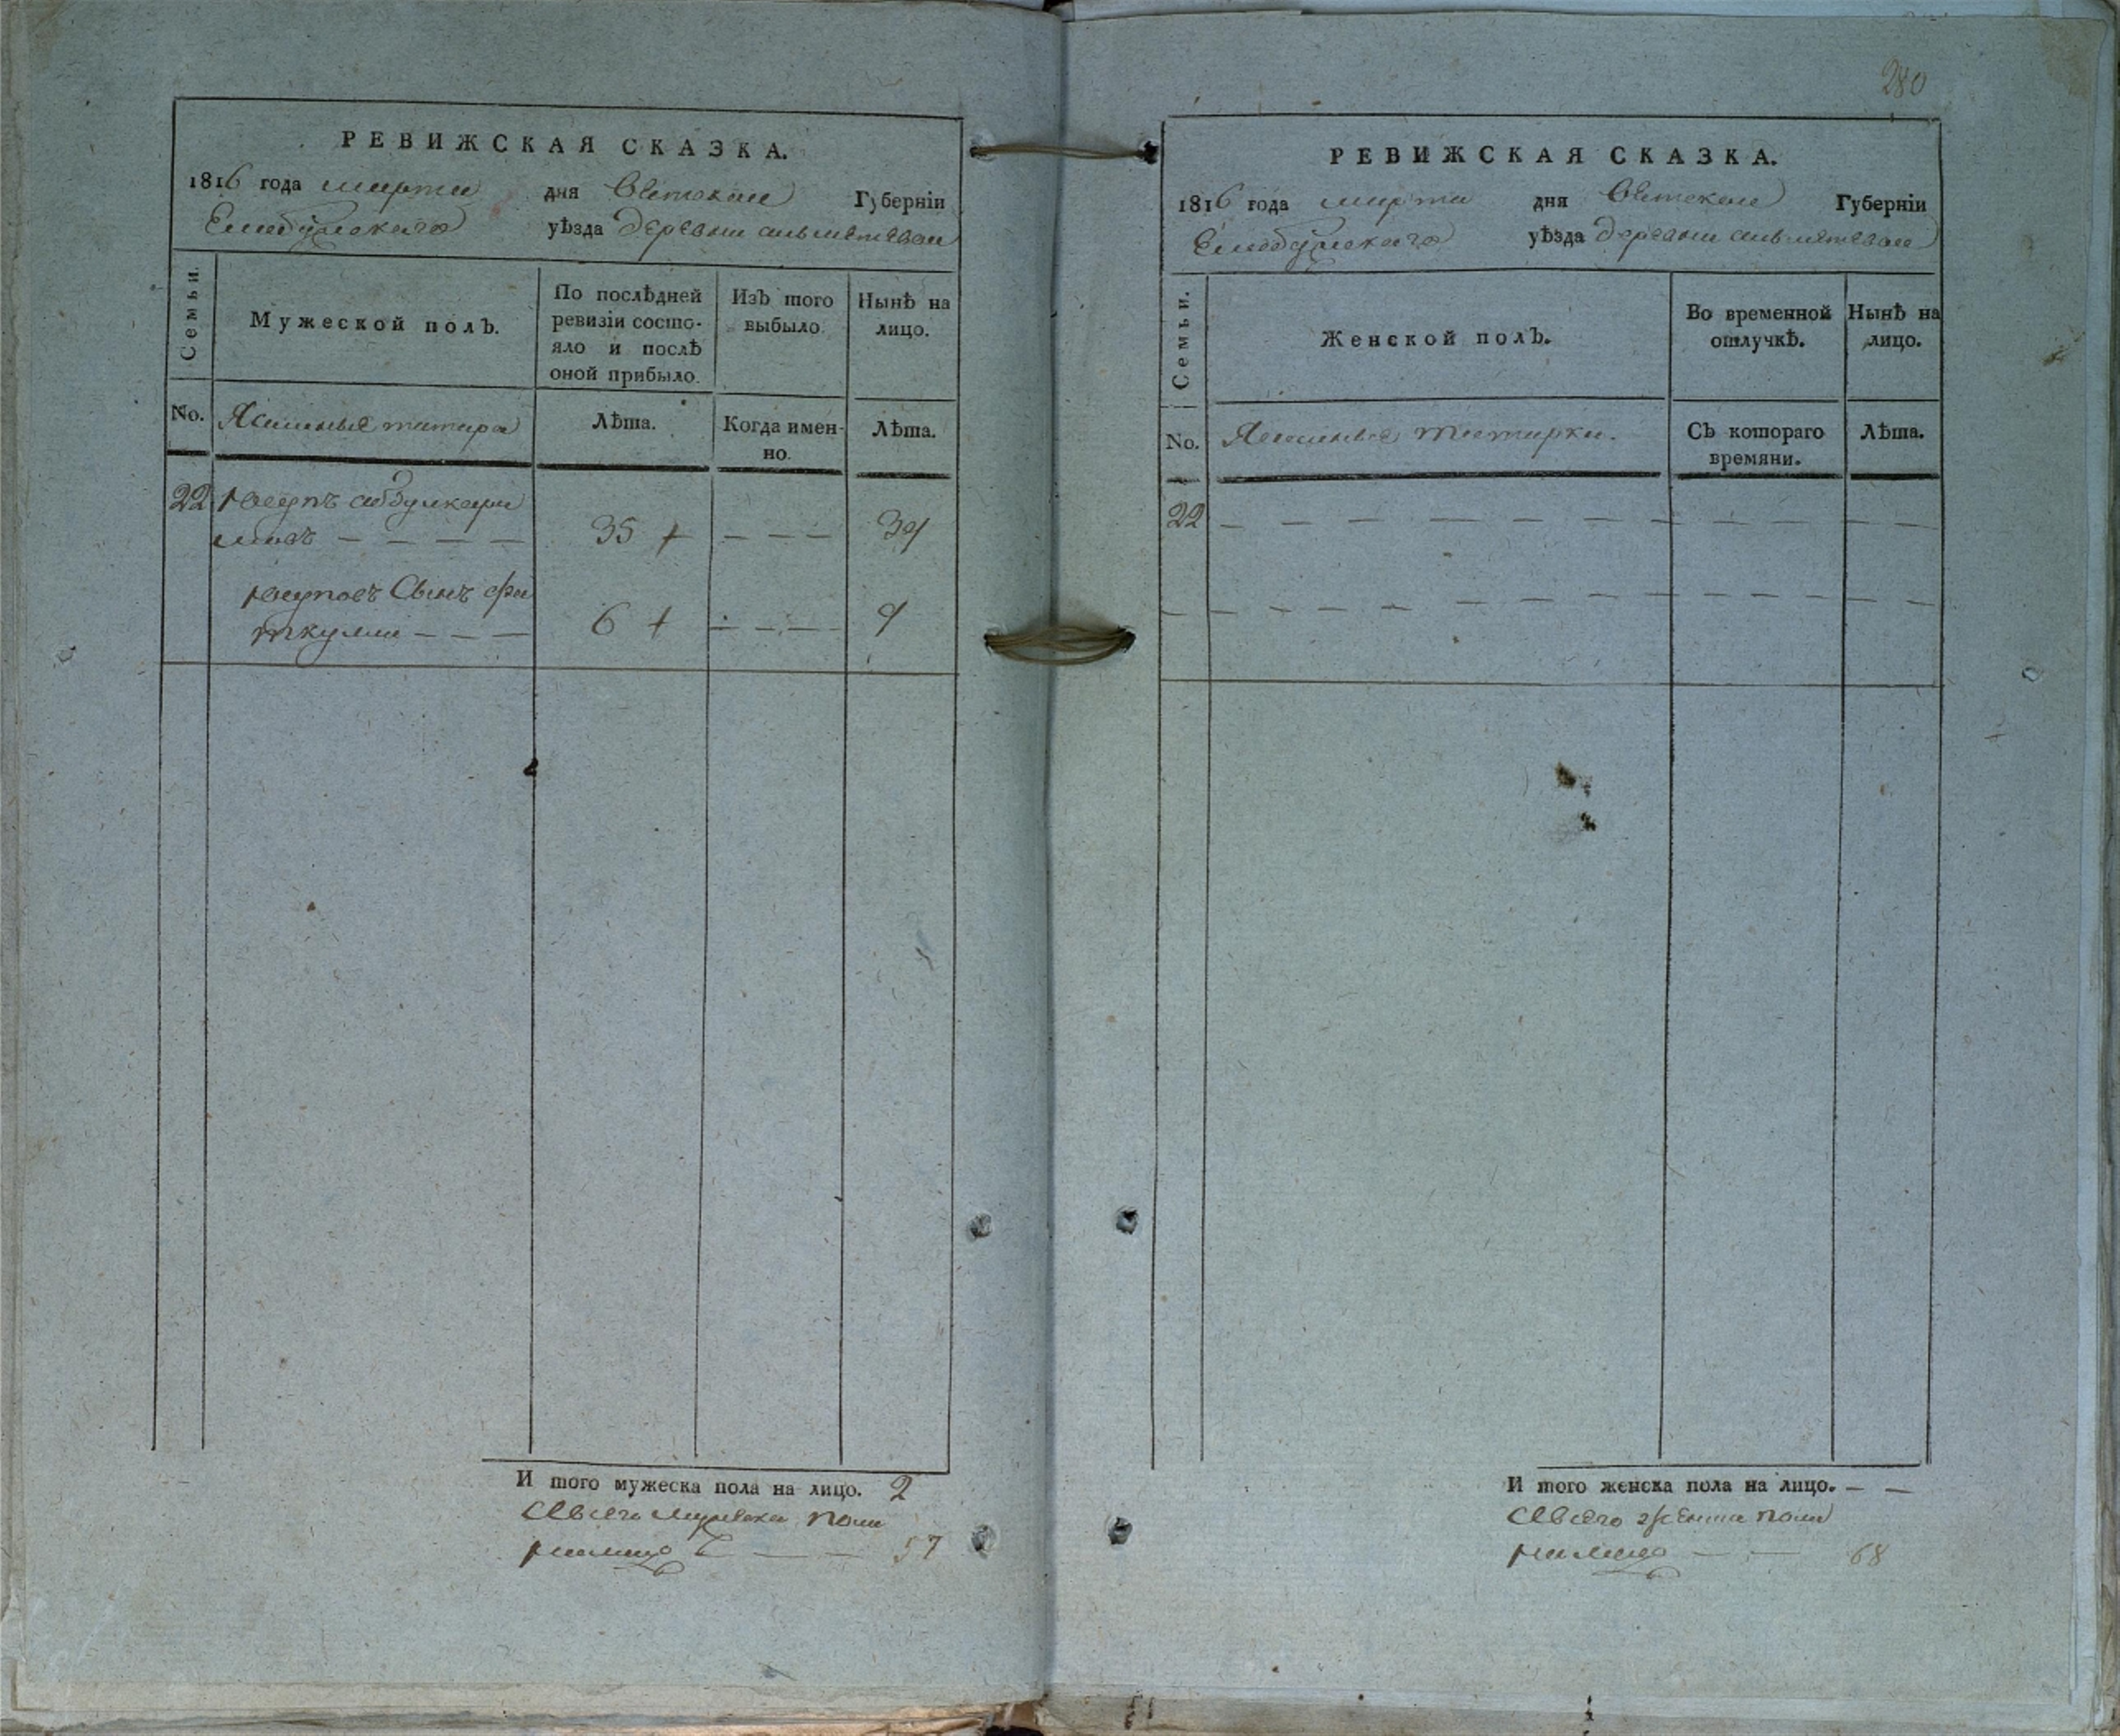 РЕВИЖСКАЯ СКАЗКА.
1816 года марта дня Вятской Губерніи
Елабужскаго уѣзда деревни
Семьи.
Мужеской полЪ.
По послѣдней ревизіи состо-
яло и послѣ оной прибыло.
ИзЪ того выбыло.
Нынѣ на лицо.
No. Ясашные татара
Лѣта.
Когда имен-
но.
Лѣта.
22 Юсупъ абдулкари
мовъ — — — — 35 + — — — 39
Юсуповъ Сынъ фа
ткулла — — — 6 + — — — 9
И того мужеска пола на лицо. 2
Авсего мужеска пола
налицо — — — 57
280
РЕВИЖСКАЯ СКАЗКА.
1816 года марта дня Вятской Губерніи
Елабужскаго уѣзда деревни
Семьи.
Женской полЪ.
Во временной отлучкѣ.
Нынѣ на лицо.
No. Ясашные татарки.
СЪ котораго времяни.
Лѣта.
22 — — — — — — — — —
И того женска пола на лицо. — —
Авсего женска пола
налицо — — 68